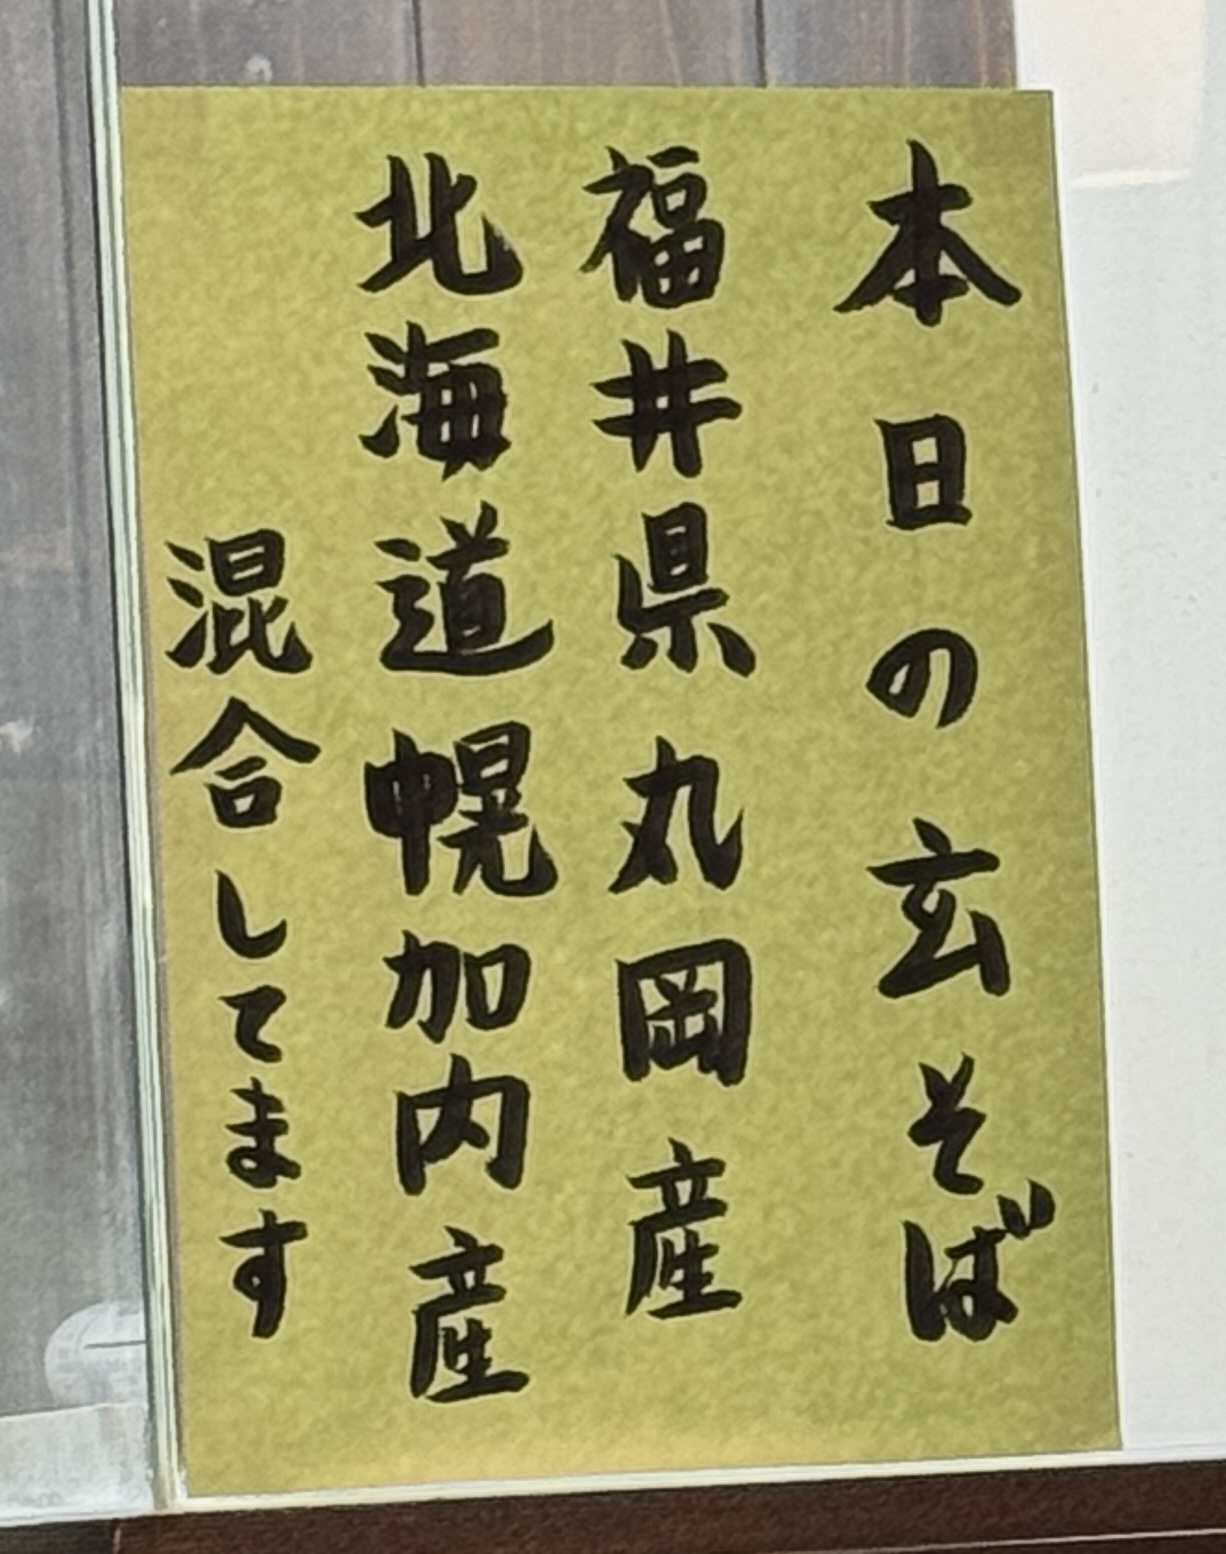 本日の玄そば
福井県丸岡産
北海道幌加内産
混合してます